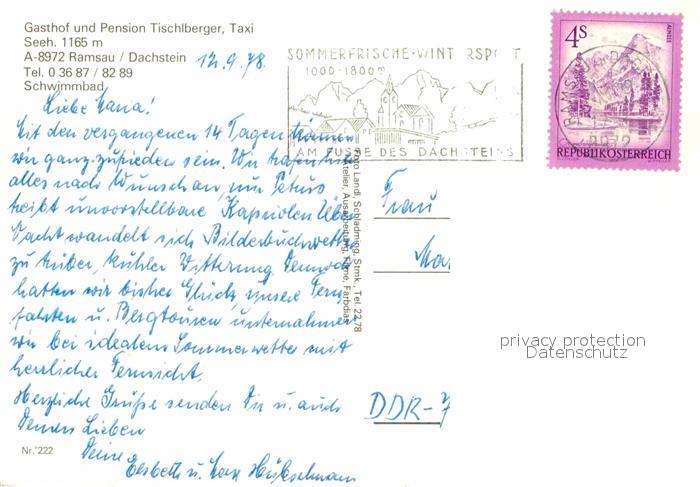 Gasthof und Pension Tischlberger, Taxi
Seeh. 1165 m
A-8972 Ramsau / Dachstein
Tel. 0 36 87 / 82 89
Schwimmbad
12.9.78.
SOMMERFRISCHE·WINTERSPORT
1000-1800m
AM FUSSE DES DACHSTEINS
4S
ALMSEE
REPUBLIK ÖSTERREICH
Liebe
Mit den vergangenen 14 Tagen können
wir ganz zufrieden sein. Wir hatten
alles nach Wunsch an, nur Petrus
treibt unvorstellbare Kapriolen. Über
Nacht wandelt sich Bilderbuchwetter
zu trüber, kühler Witterung. Dennoch
hatten wir bisher Glück, unsere Fern
fahrten u. Bergtouren unternahmen
wir bei idealem Sommerwetter mit
herrlicher Fernsicht.
Herzliche Grüße senden Dir u. auch
Deinen Lieben
Deine
Elsbeth u.
Nr. 222
Foto Landl, Schladming, Stmk., Tel. 22 78
Atelier, Ausarbeitung, Filme, Farbdias
Frau
Ma
DDR-7
privacy protection
Datenschutz